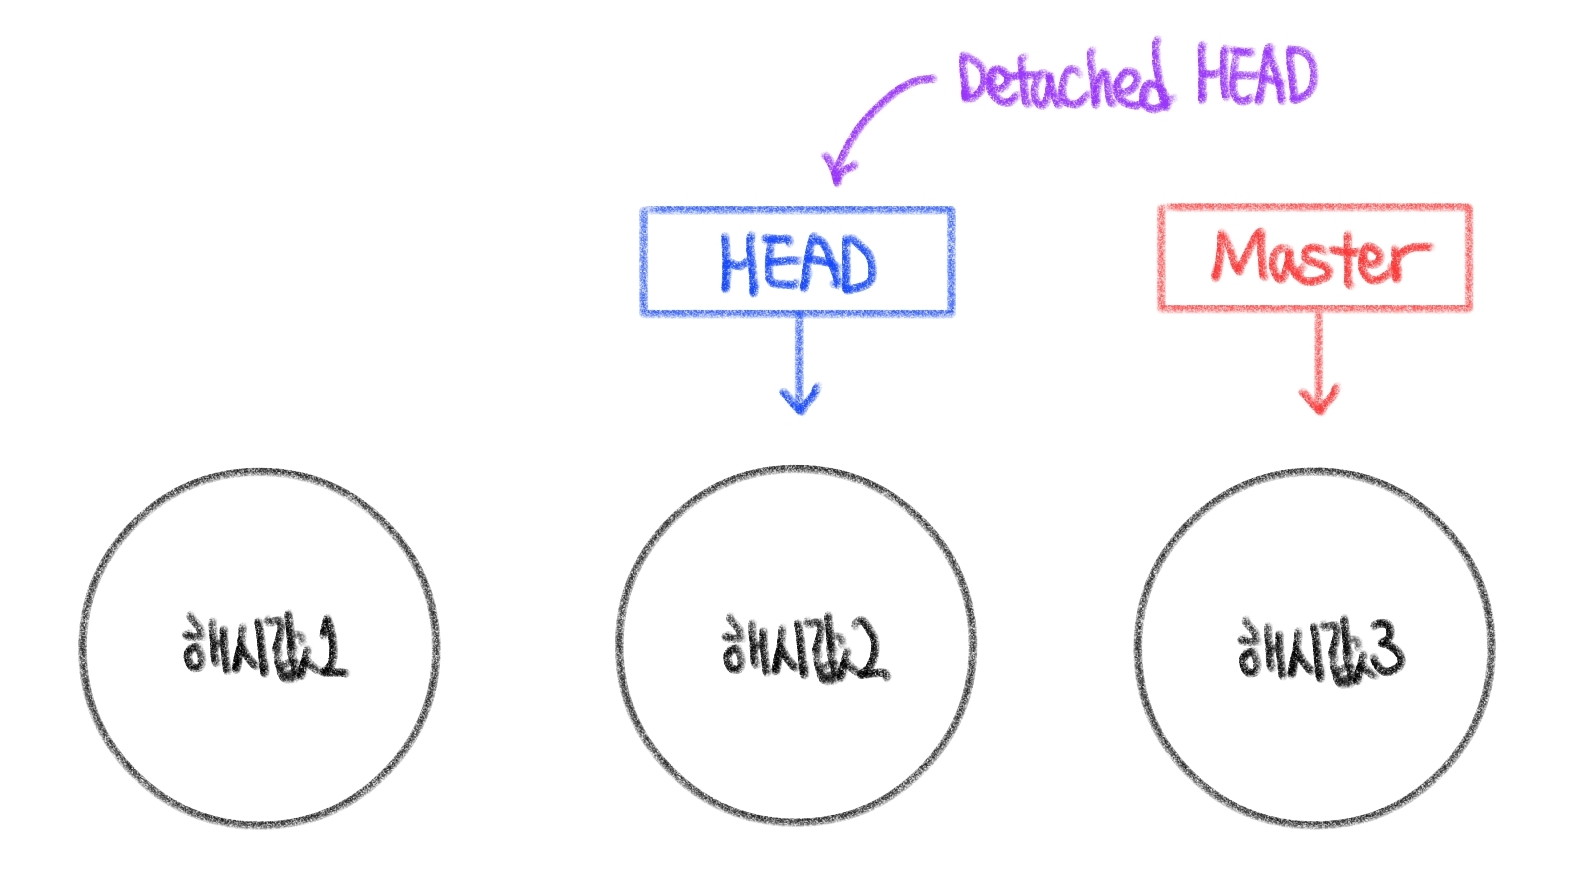 Detached HEAD
HEAD
Master
해시값1
해시값2
해시값3